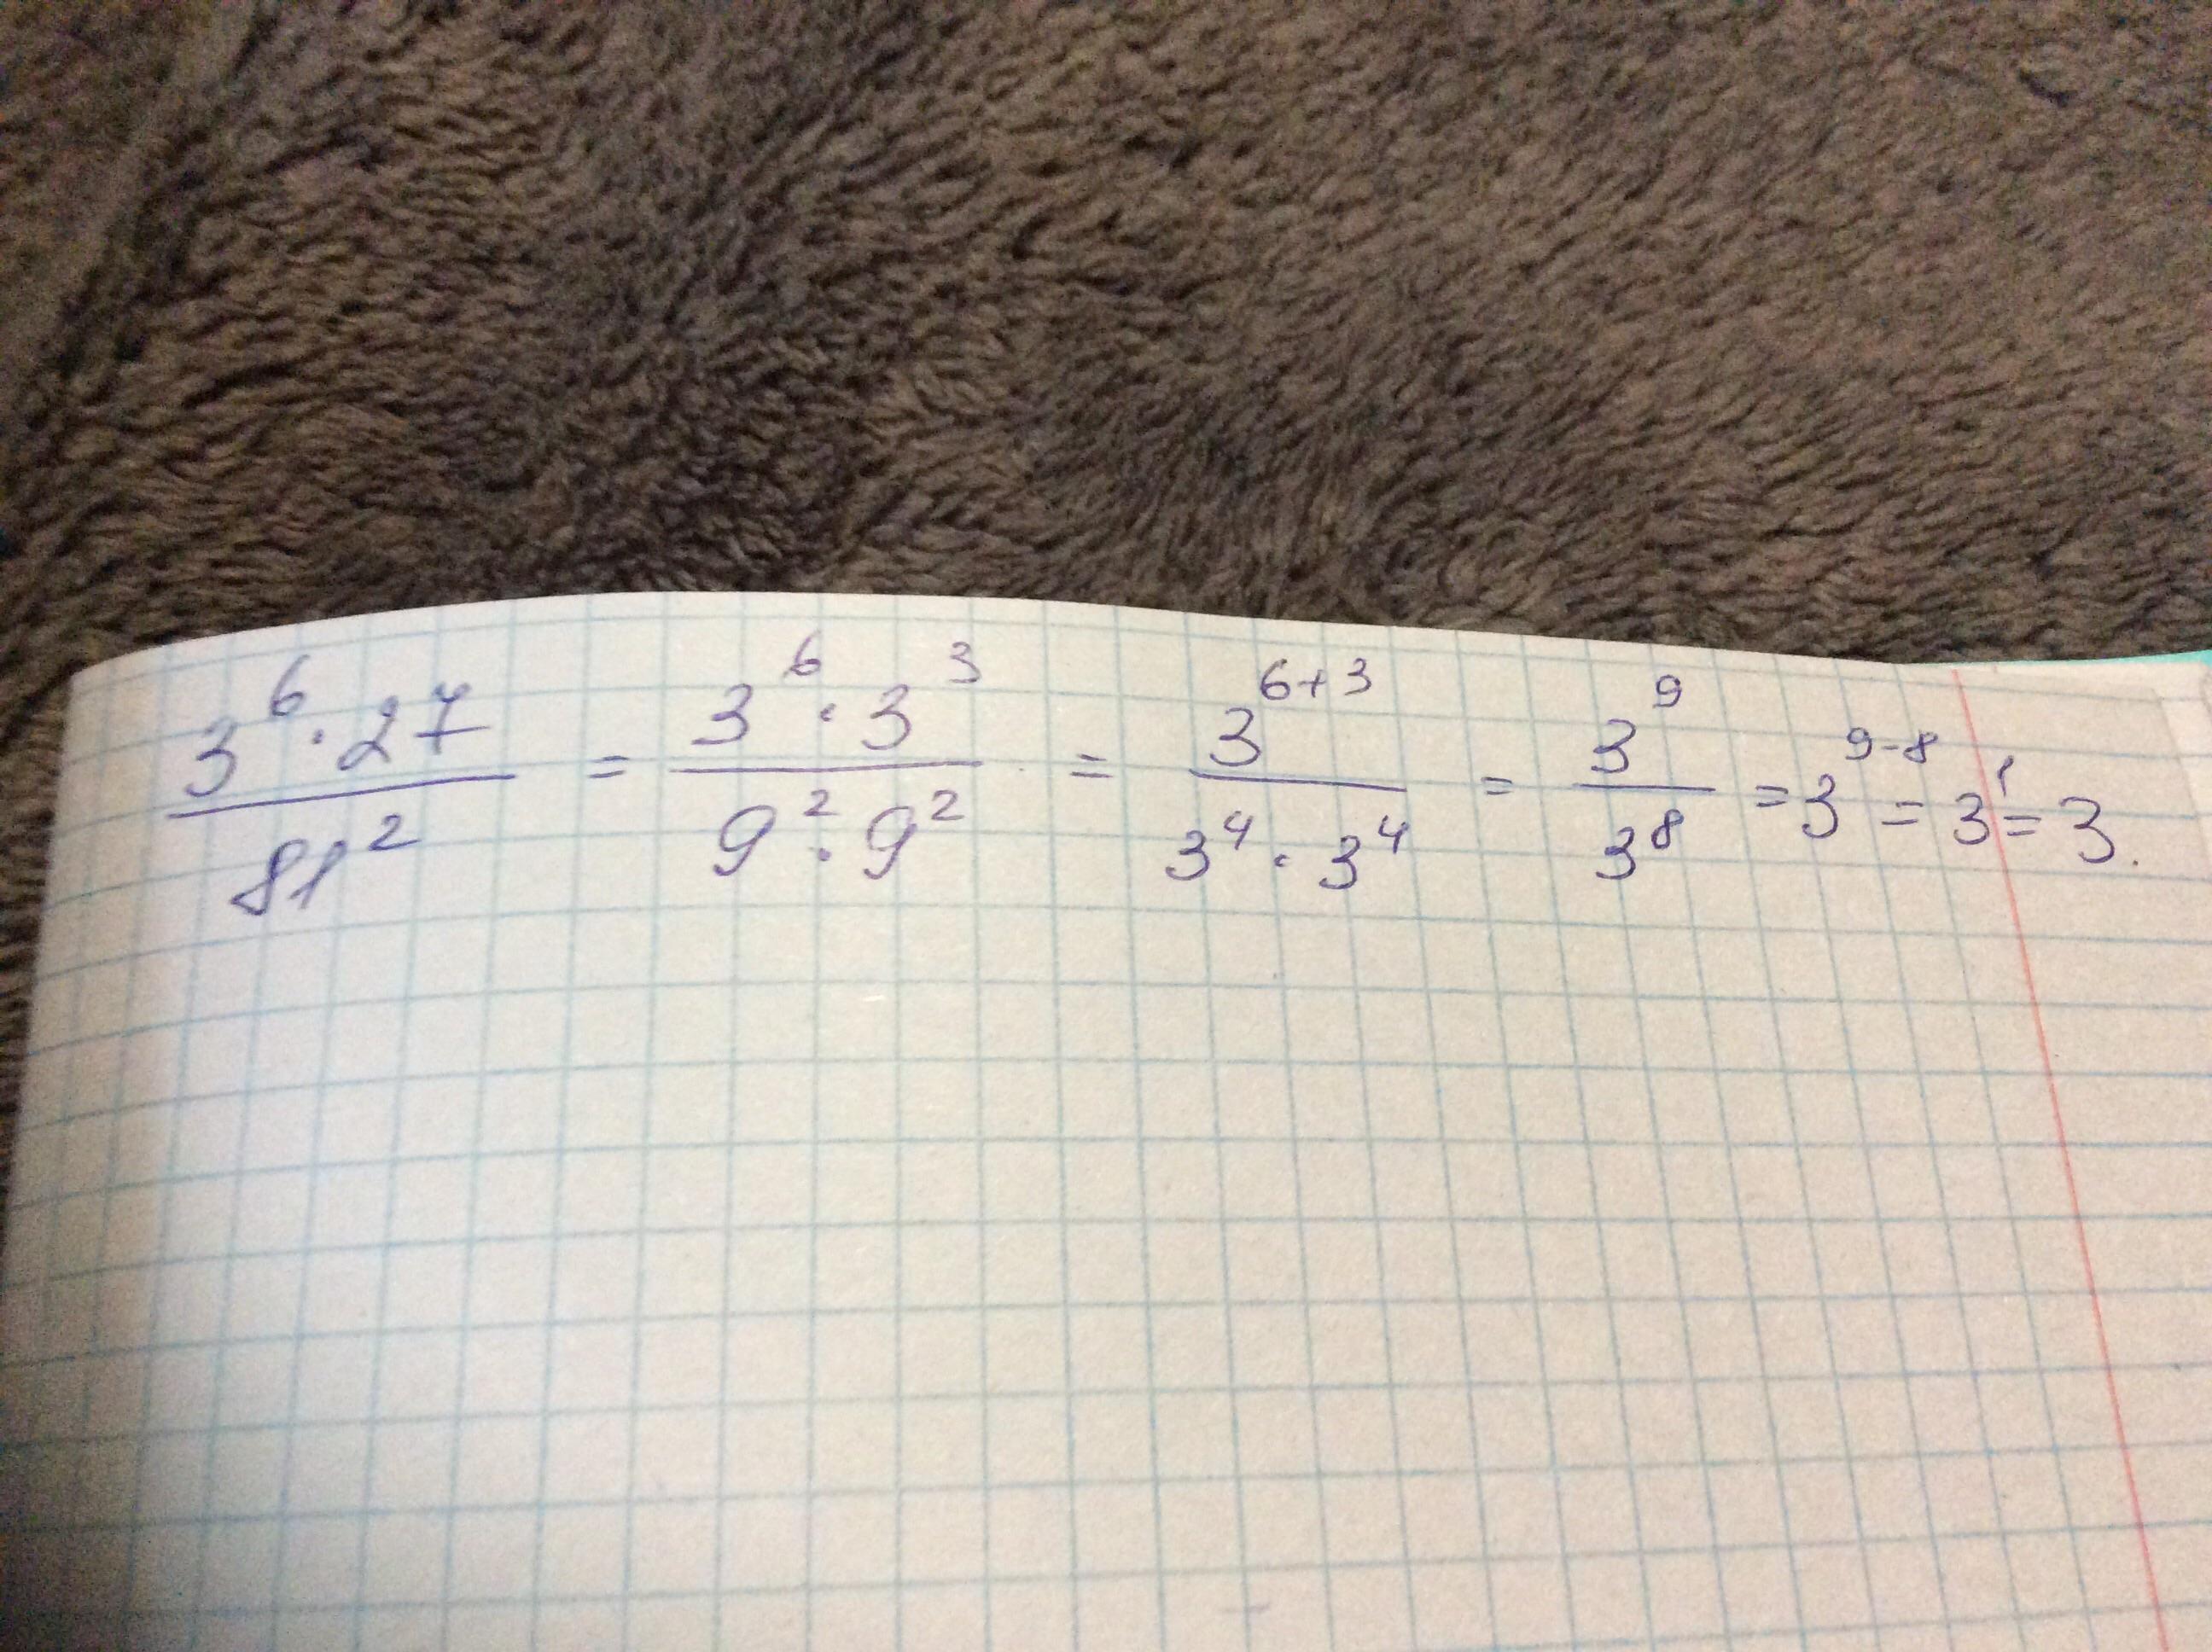 3⁶·27/81² = 3⁶·3³/9²·9² = 3⁶⁺³/3⁴·3⁴ = 3⁹/3⁸ = 3⁹⁻⁸ = 3¹ = 3.